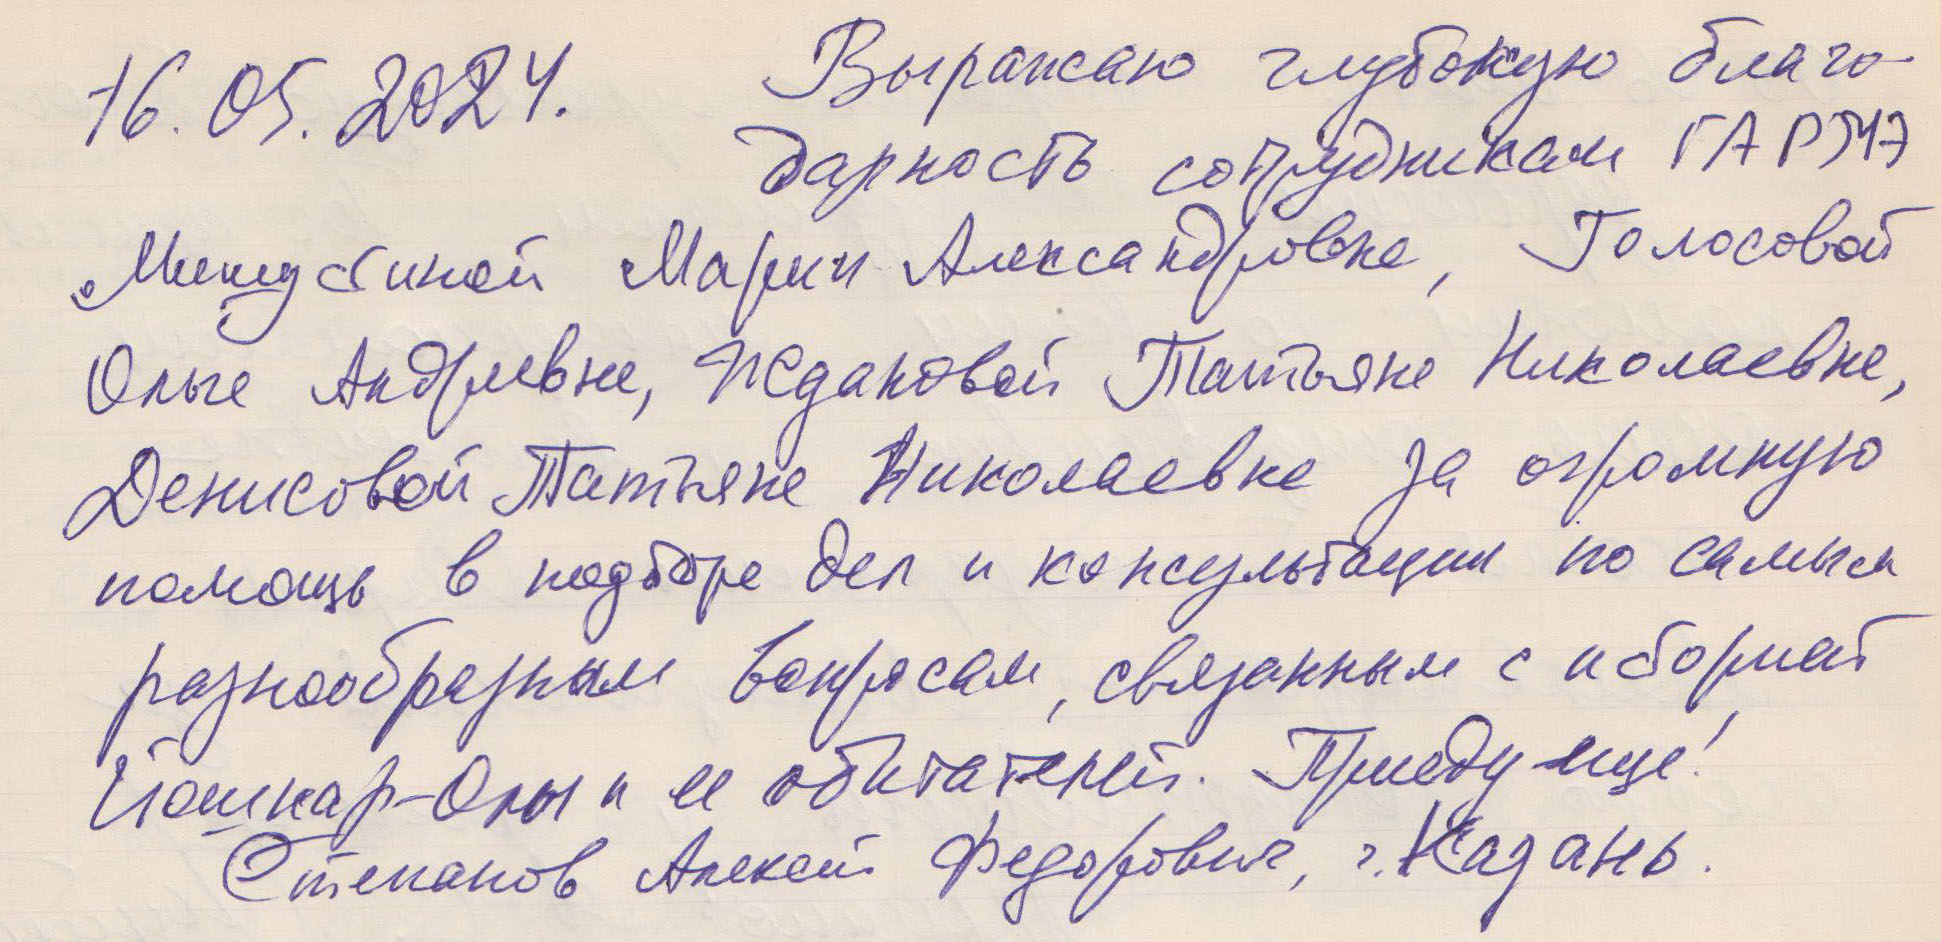 16.05.2024. Выражаю глубокую благо-
дарность сотрудникам ГА РМЭ
Марии Александровне, Голосовой
Ольге Андреевне, Ждановой Татьяне Николаевне,
Денисовой Татьяне Николаевне за огромную
помощь в подборе дел и консультации по самым
разнообразным вопросам, связанным с историей
Йошкар-Олы и ее обитателей. Приеду еще!
Степанов Алексей Федорович, г. Казань.